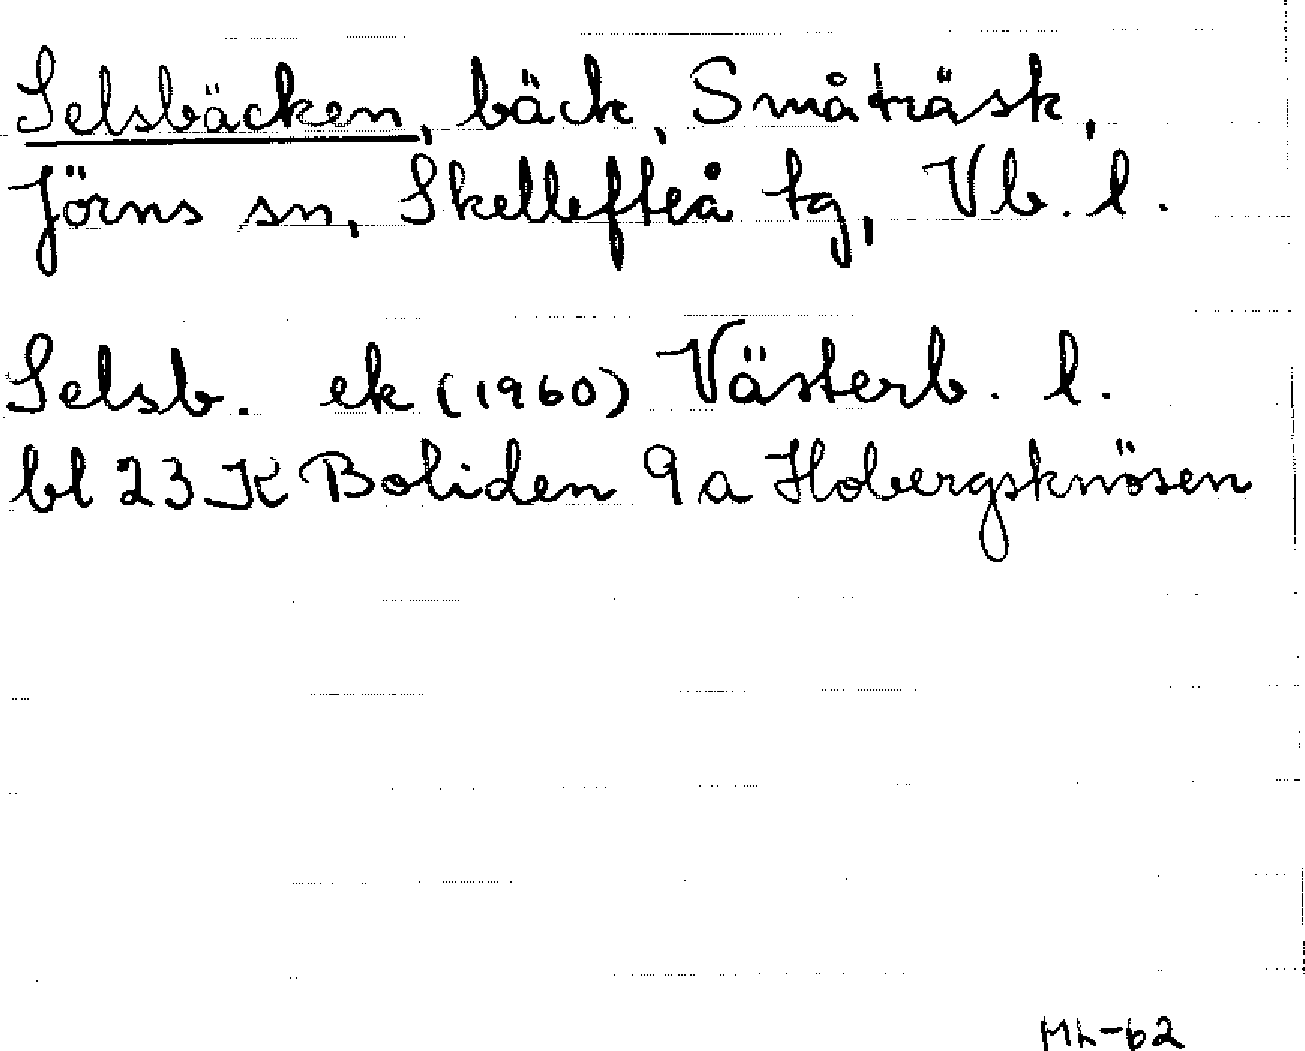 Selsbäcken, bäck, Småträsk,
Jörns sn, Skellefteå tg, Vb. l.
Selsb. ek (1960) Västerb. l.
bl 23 K Boliden 9a Hobergsknösen
ML-62